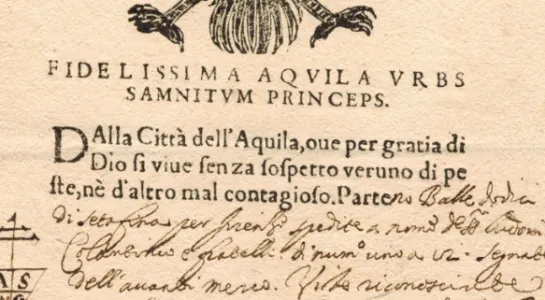 FIDELISSIMA AQVILA VRBS
SAMNITVM PRINCEPS.
DAlla Città dell'Aquila, oue per gratia di
Dio si viue senza sospetto veruno di pe
ste, nè d'altro mal contagioso. Parteno Balle dodici
di seta fina per spedite a nome
e fratelli di num° uno a 12
dell'auanti merco.
A S